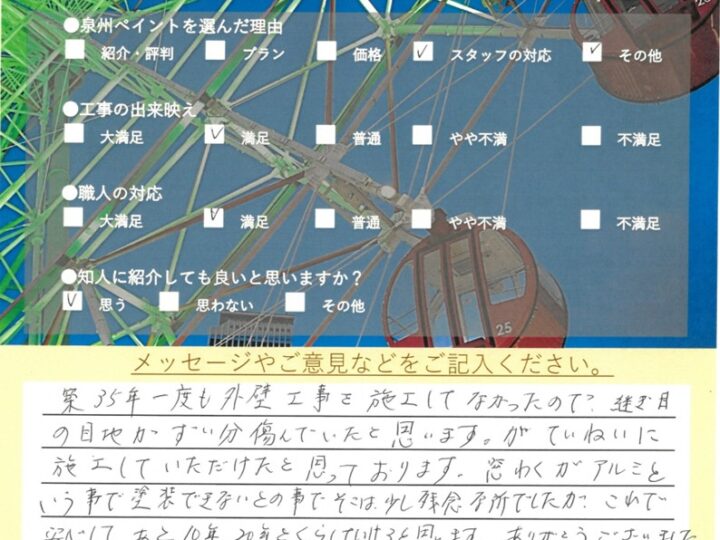 ●泉州ペイントを選んだ理由
紹介・評判 プラン 価格 スタッフの対応 その他
●工事の出来映え
大満足 満足 普通 やや不満 不満足
●職人の対応
大満足 満足 普通 やや不満 不満足
●知人に紹介しても良いと思いますか？
思う 思わない その他
25
メッセージやご意見などをご記入ください。
築35年一度も外壁工事を施工してなかったので、 目
の目地がずい分傷んでいたと思います。がていねいに
施工していただけたと思っております。窓わくがアルミと
いう事で塗装できないとの事でそこは少し残念な所でしたが、これで
安心して、あと10年、20年とくらしていけると思います。ありがとうございました